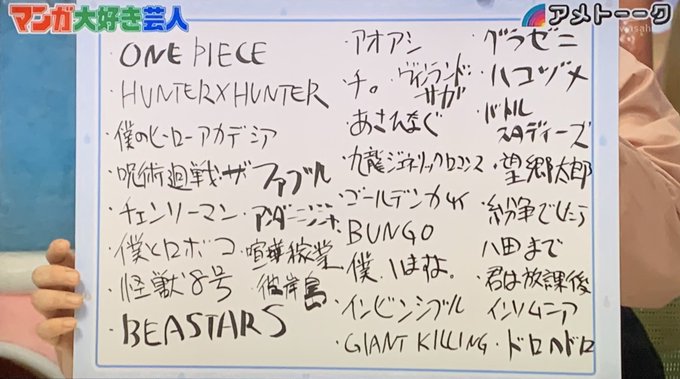 マンガ大好き芸人
アメトーーク
・ONE PIECE
・HUNTER×HUNTER
・僕のヒーローアカデミア
・呪術廻戦・ザ ファブル
・チェンソーマン・アンダーニンジャ
・僕とロボコ・喧嘩稼業
・怪獣8号・彼岸島
・BEASTARS
・アオアシ
・チ。・ヴィンランド
サガ
・あさひなぐ
・九龍ジェネリックロマンス
・ゴールデンカムイ
・BUNGO
・僕はまだ。
・インビンシブル
・GIANT KILLING
・グラゼニ
・ハコヅメ
・バトル
スタディーズ
・望郷太郎
・紛争でしたら
八田まで
・君は放課後
インソムニア
・ドロヘドロ